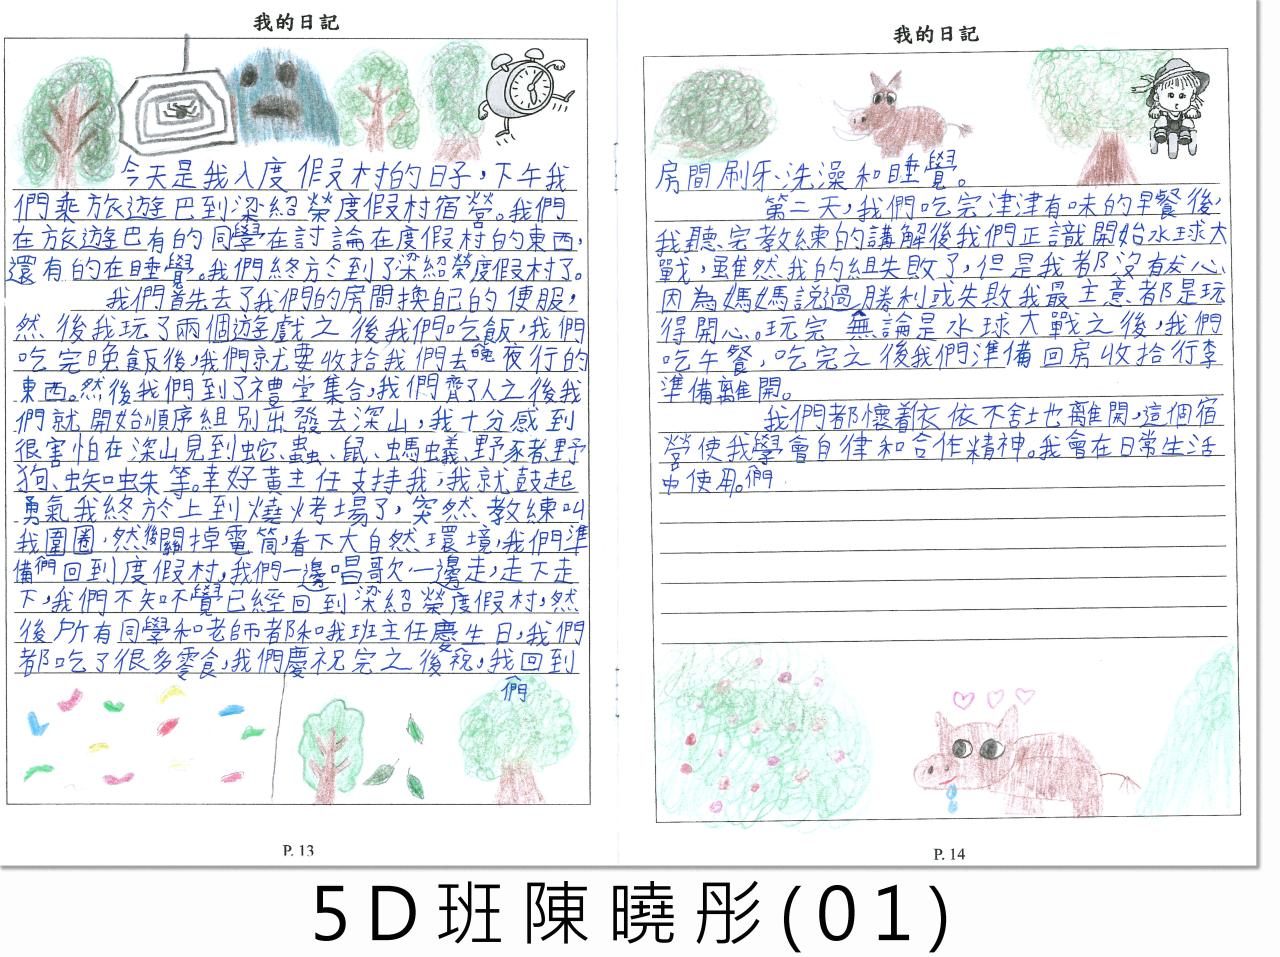 我的日記
今天是我入度假村的日子，下午我
們乘旅遊巴到梁紹榮度假村宿營。我們
在旅遊巴有的同學在討論在度假村的東西，
還有的在睡覺。我們終於到了梁紹榮度假村了。
我們首先去了我們的房間換自己的便服，
然後我玩了兩個遊戲之後我們吃飯，我們
吃完晚飯後，我們就要收拾我們去晚夜行的
東西。然後我們到了禮堂集合，我們齊了人之後我
們就開始順序組別出發去深山，我十分感到
很害怕在深山見到蛇、蟲、鼠、螞蟻、野豬、野
狗、蜘蛛等。幸好黃主任支持我，我就鼓起
勇氣我終於上到燒烤場了，突然教練叫
我圍圈，然後關掉電筒，看下大自然環境，我們準
備們回到度假村，我們一邊唱歌一邊走，走下走
下，我們不知不覺已經回到梁紹榮度假村，然
後所有同學和老師都和我班主任慶生日，我們
都吃了很多零食，我們慶祝完之後祝，我回到
們
P. 13
我的日記
房間刷牙、洗澡和睡覺。
第二天，我們吃完津津有味的早餐後，
我聽完教練的講解後我們正識開始水球大
戰，雖然我的組失敗了，但是我都沒有灰心，
因為媽媽說過勝利或失敗我最主意都是玩
得開心。玩完無論是水球大戰之後，我們
吃午餐，吃完之後我們準備回房收拾行李
準備離開。
我們都懷着依依不舍地離開，這個宿
營使我學會自律和合作精神。我會在日常生活
中使用。們
P. 14
5D班陳曉彤(01)